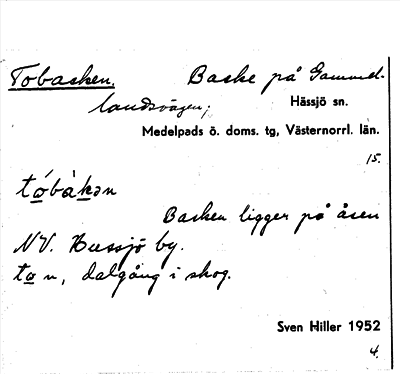 Tobacken. Backe på Gammel-
landsvägen;
Hässjö sn.
Medelpads ö. doms. tg, Västernorrl. län.
15.
tóbàkən
Backen ligger på åsen
NV. Hässjö by.
to n, dalgång i skog.
Sven Hiller 1952
4.